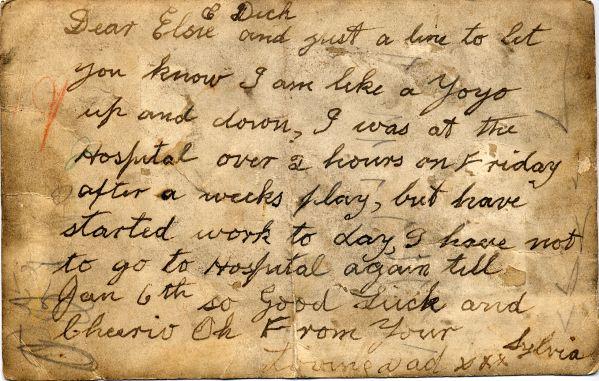 E Dick
Dear Elsie and just a line to let
you know I am like a Yoyo
up and down, I was at the
Hospital over 2 hours on Friday
after a weeks play, but have
started work to day, I have not
to go to Hospital again till
Jan 6th so Good Luck and
Cheerio Oh From Your
Loving Dad xxx Sylvia